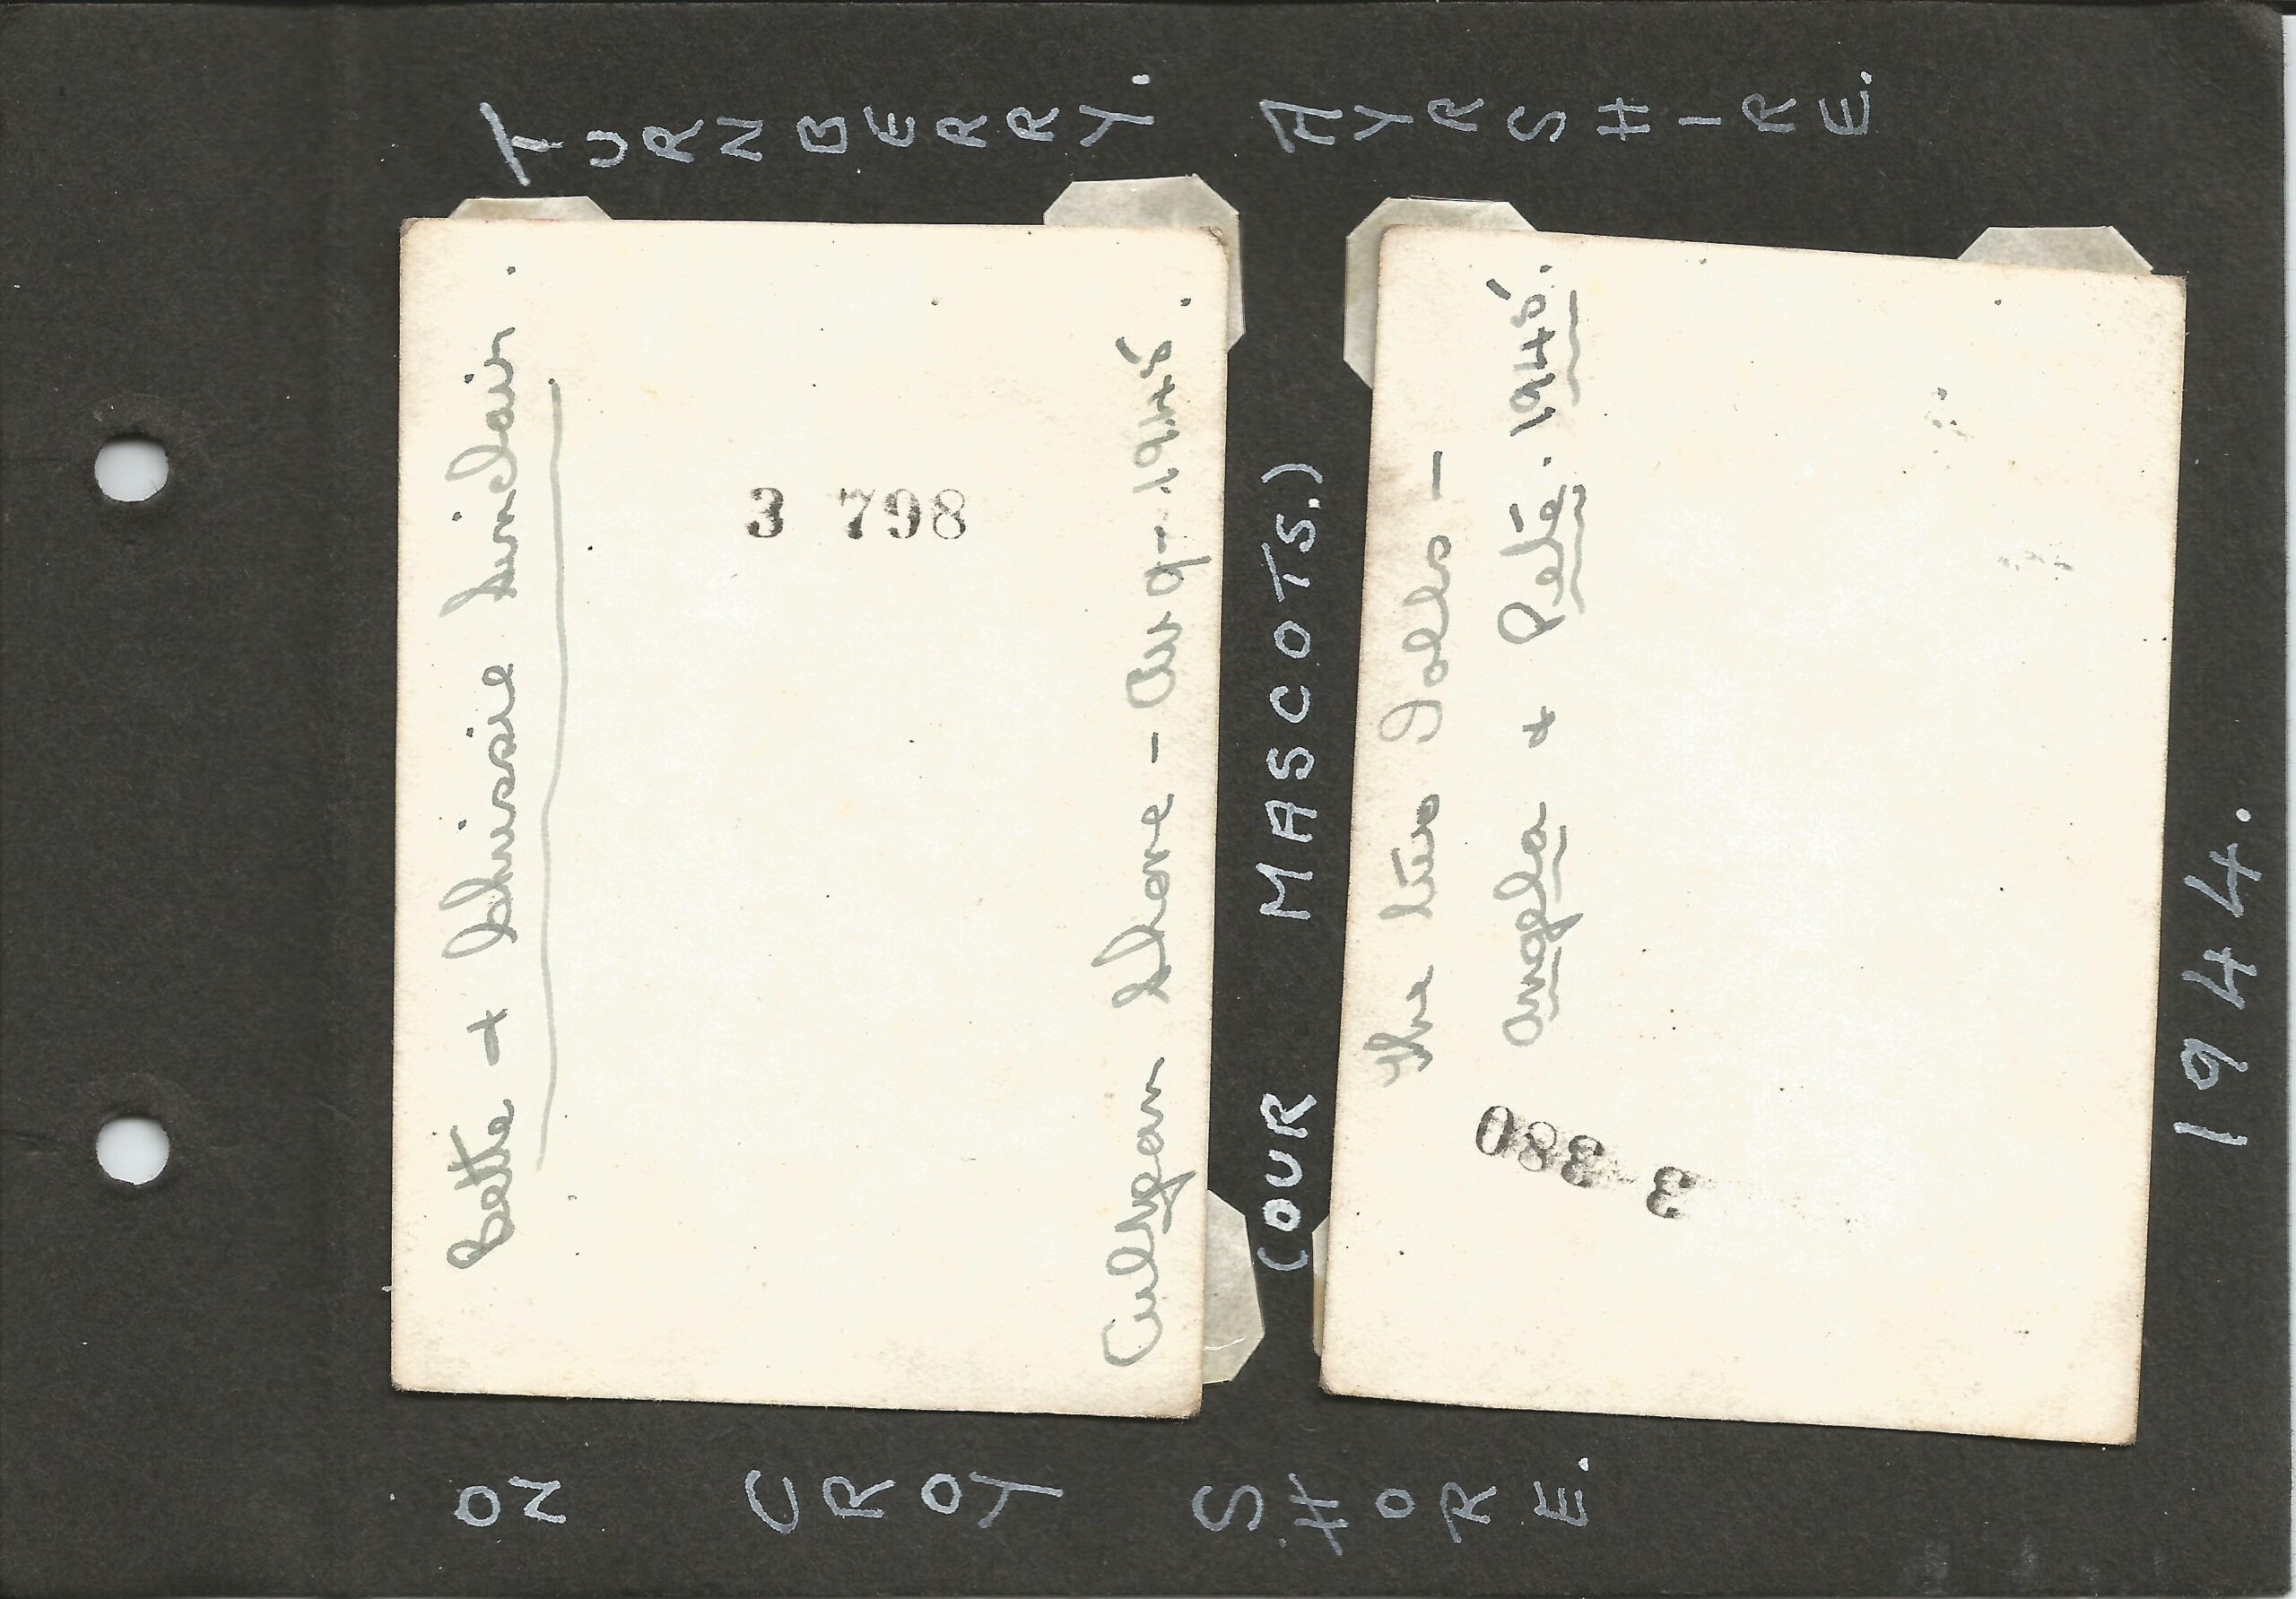 TURNBERRY. AYRSHIRE.
Bette + Chrissie Sinclair.
3 798
Culzean Shore - Aug - 1945.
(OUR MASCOTS.)
The two Pals -
Angela + Pete. 1945.
3 380
1944.
ON CROY SHORE.